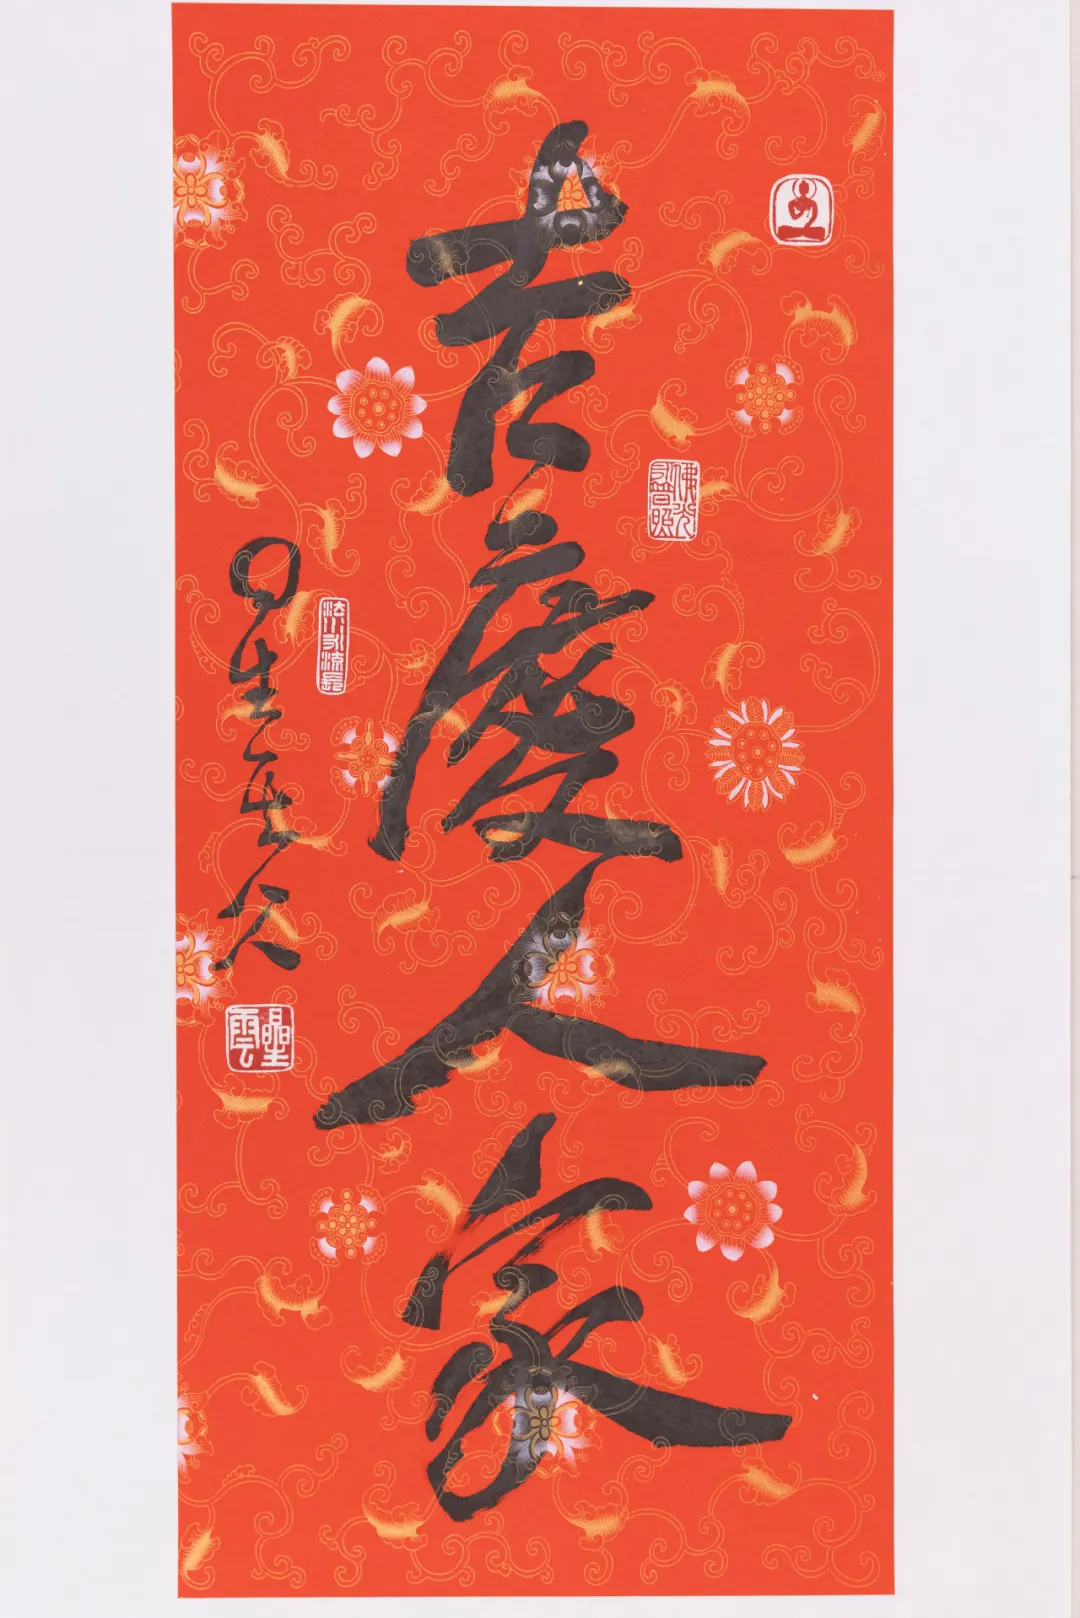 吉慶人家
佛光永普照
星云
法水永流長
星雲